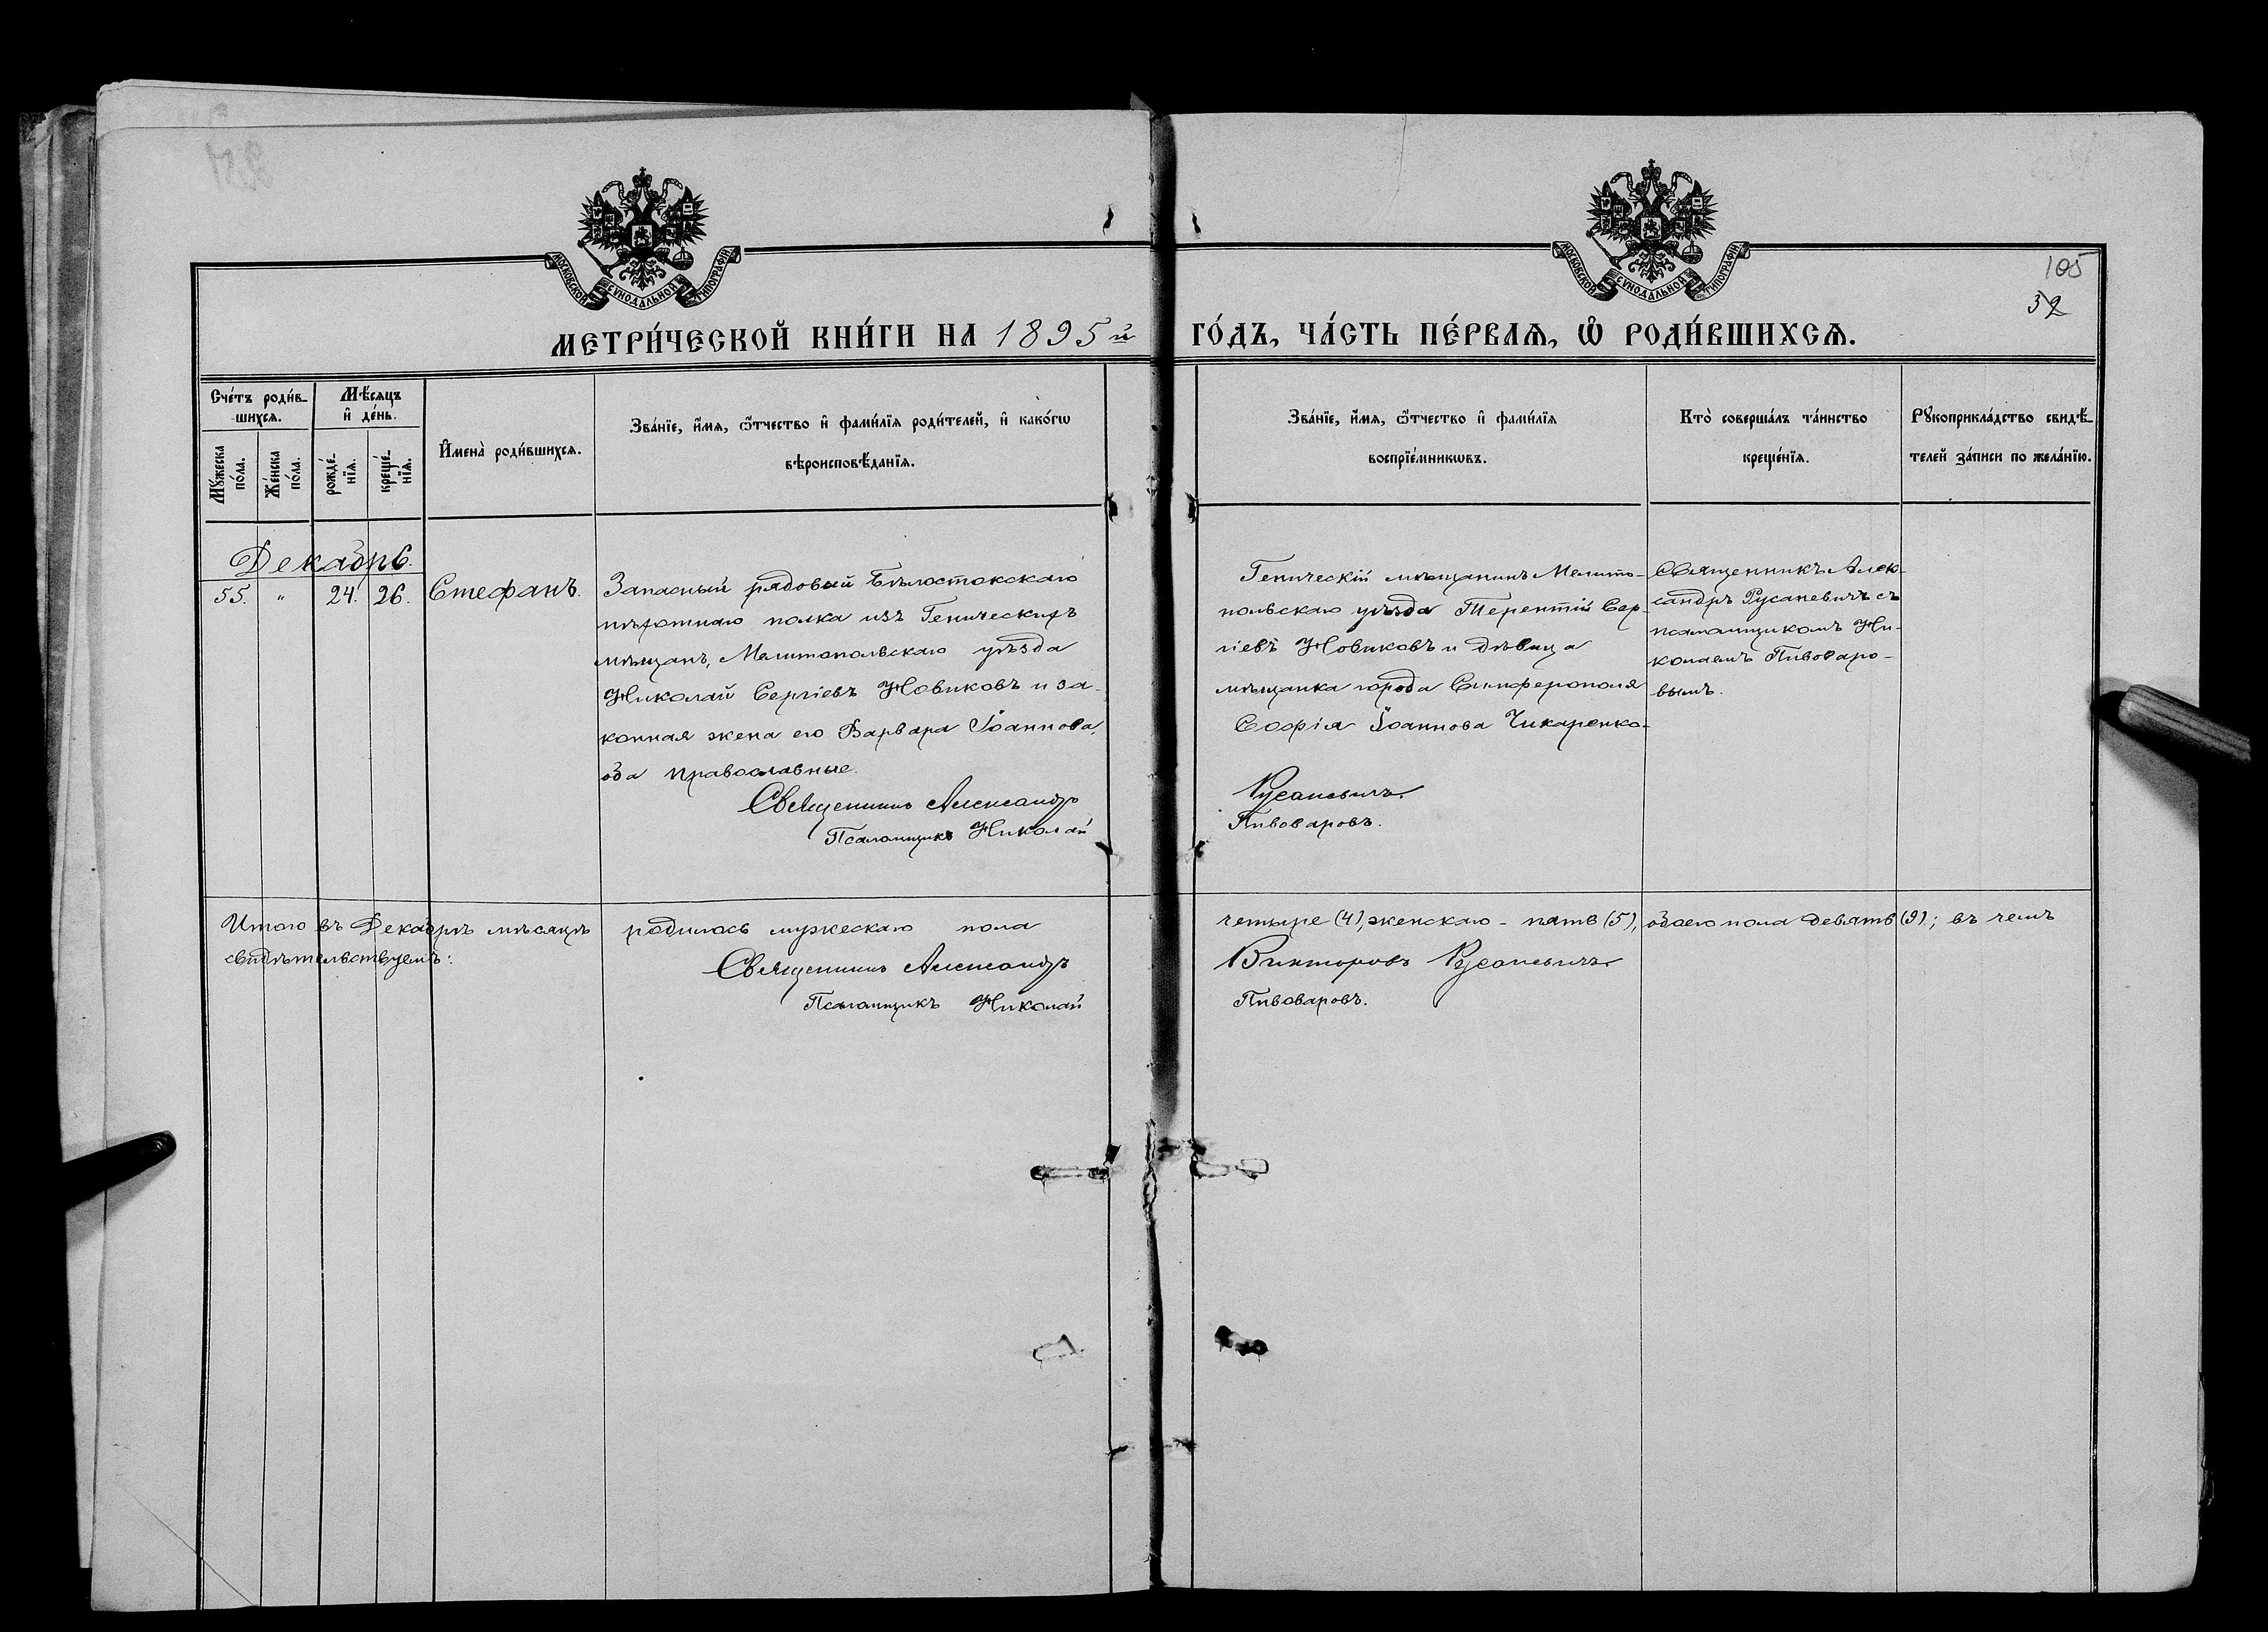 МОСКОВСКОЙ СѴНОДАЛЬНОЙ ТИПОГРАФІИ
МОСКОВСКОЙ СѴНОДАЛЬНОЙ ТИПОГРАФІИ
105
32
МЕТРИ́ЧЕСКОЙ КНИ́ГИ НА 1895й ГО́ДЪ, ЧА́СТЬ ПЕ́РВАѦ, Ѡ҆ РОДИ́ВШИХСѦ.
Сче́тъ роди́в-
шихсѧ.
Мѣ́сѧцъ
и҆ де́нь.
Мꙋ́жеска
по́ла.
Же́нска
по́ла.
рожде́-
нїѧ.
креще́-
нїѧ.
И҆мена̀ роди́вшихсѧ.
Зва́нїе, и҆́мѧ, ѻ҆́тчество и҆ фами́лїѧ роди́телей, и҆ како́гѡ
вѣроисповѣ́данїѧ.
Зва́нїе, и҆́мѧ, ѻ҆́тчество и҆ фами́лїѧ
воспрїе́мникѡвъ.
Кто̀ соверша́лъ та́инство
креще́нїѧ.
Рꙋкоприкла́дство свидѣ́-
телей за́писи по жела́нїю.
Декабрь.
55. " 24. 26. Стефанъ.
Запасный рядовый Бѣлостокскаго
пѣхотнаго полка изъ Геническихъ
мѣщанъ, Мелитопольскаго уѣзда
Николай Сергіевъ Новиковъ и за-
конная жена его Варвара Іоаннова,
оба православные.
Священникъ Александръ
Псаломщикъ Николай
Геническій мѣщанинъ Мелито-
польскаго уѣзда Терентій Сер-
гіевъ Новиковъ и дѣвица
мѣщанка города Симферополя
Софія Іоаннова Чикаренко-
Русаневичъ
Пивоваровъ.
Священникъ Алек-
сандръ Русаневичъ съ
псаломщикомъ Ни-
колаемъ Пивоваро-
вымъ.
Итого въ Декабрѣ мѣсяцѣ родилось мужескаго пола четыре (4), женскаго - пять (5), обоего пола девять (9).; въ чемъ
свидѣтельствуемъ:
Священникъ Александръ Викторовъ Русаневичъ
Псаломщикъ Николай Пивоваровъ.